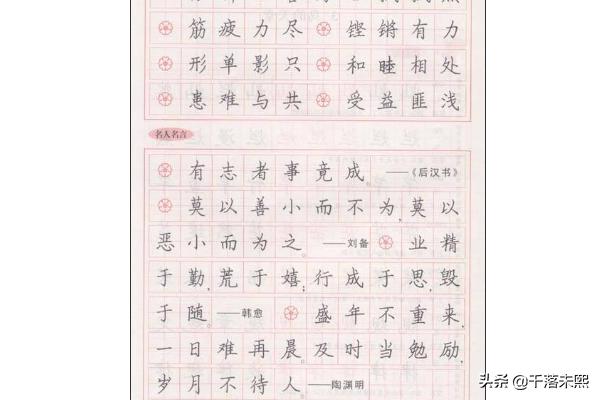 筋疲力尽 铿锵有力
形单影只 和睦相处
患难与共 受益匪浅
名人名言
有志者事竟成。——《后汉书》
莫以善小而不为,莫以
恶小而为之。——刘备 业精
于勤,荒于嬉;行成于思,毁
于随。——韩愈 盛年不重来,
一日难再晨。及时当勉励,
岁月不待人。——陶渊明
头条 @千落未熙